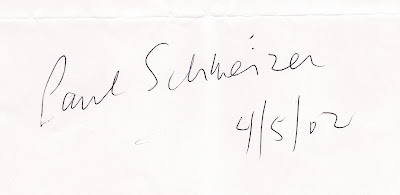 Paul Schweizer
4/5/02